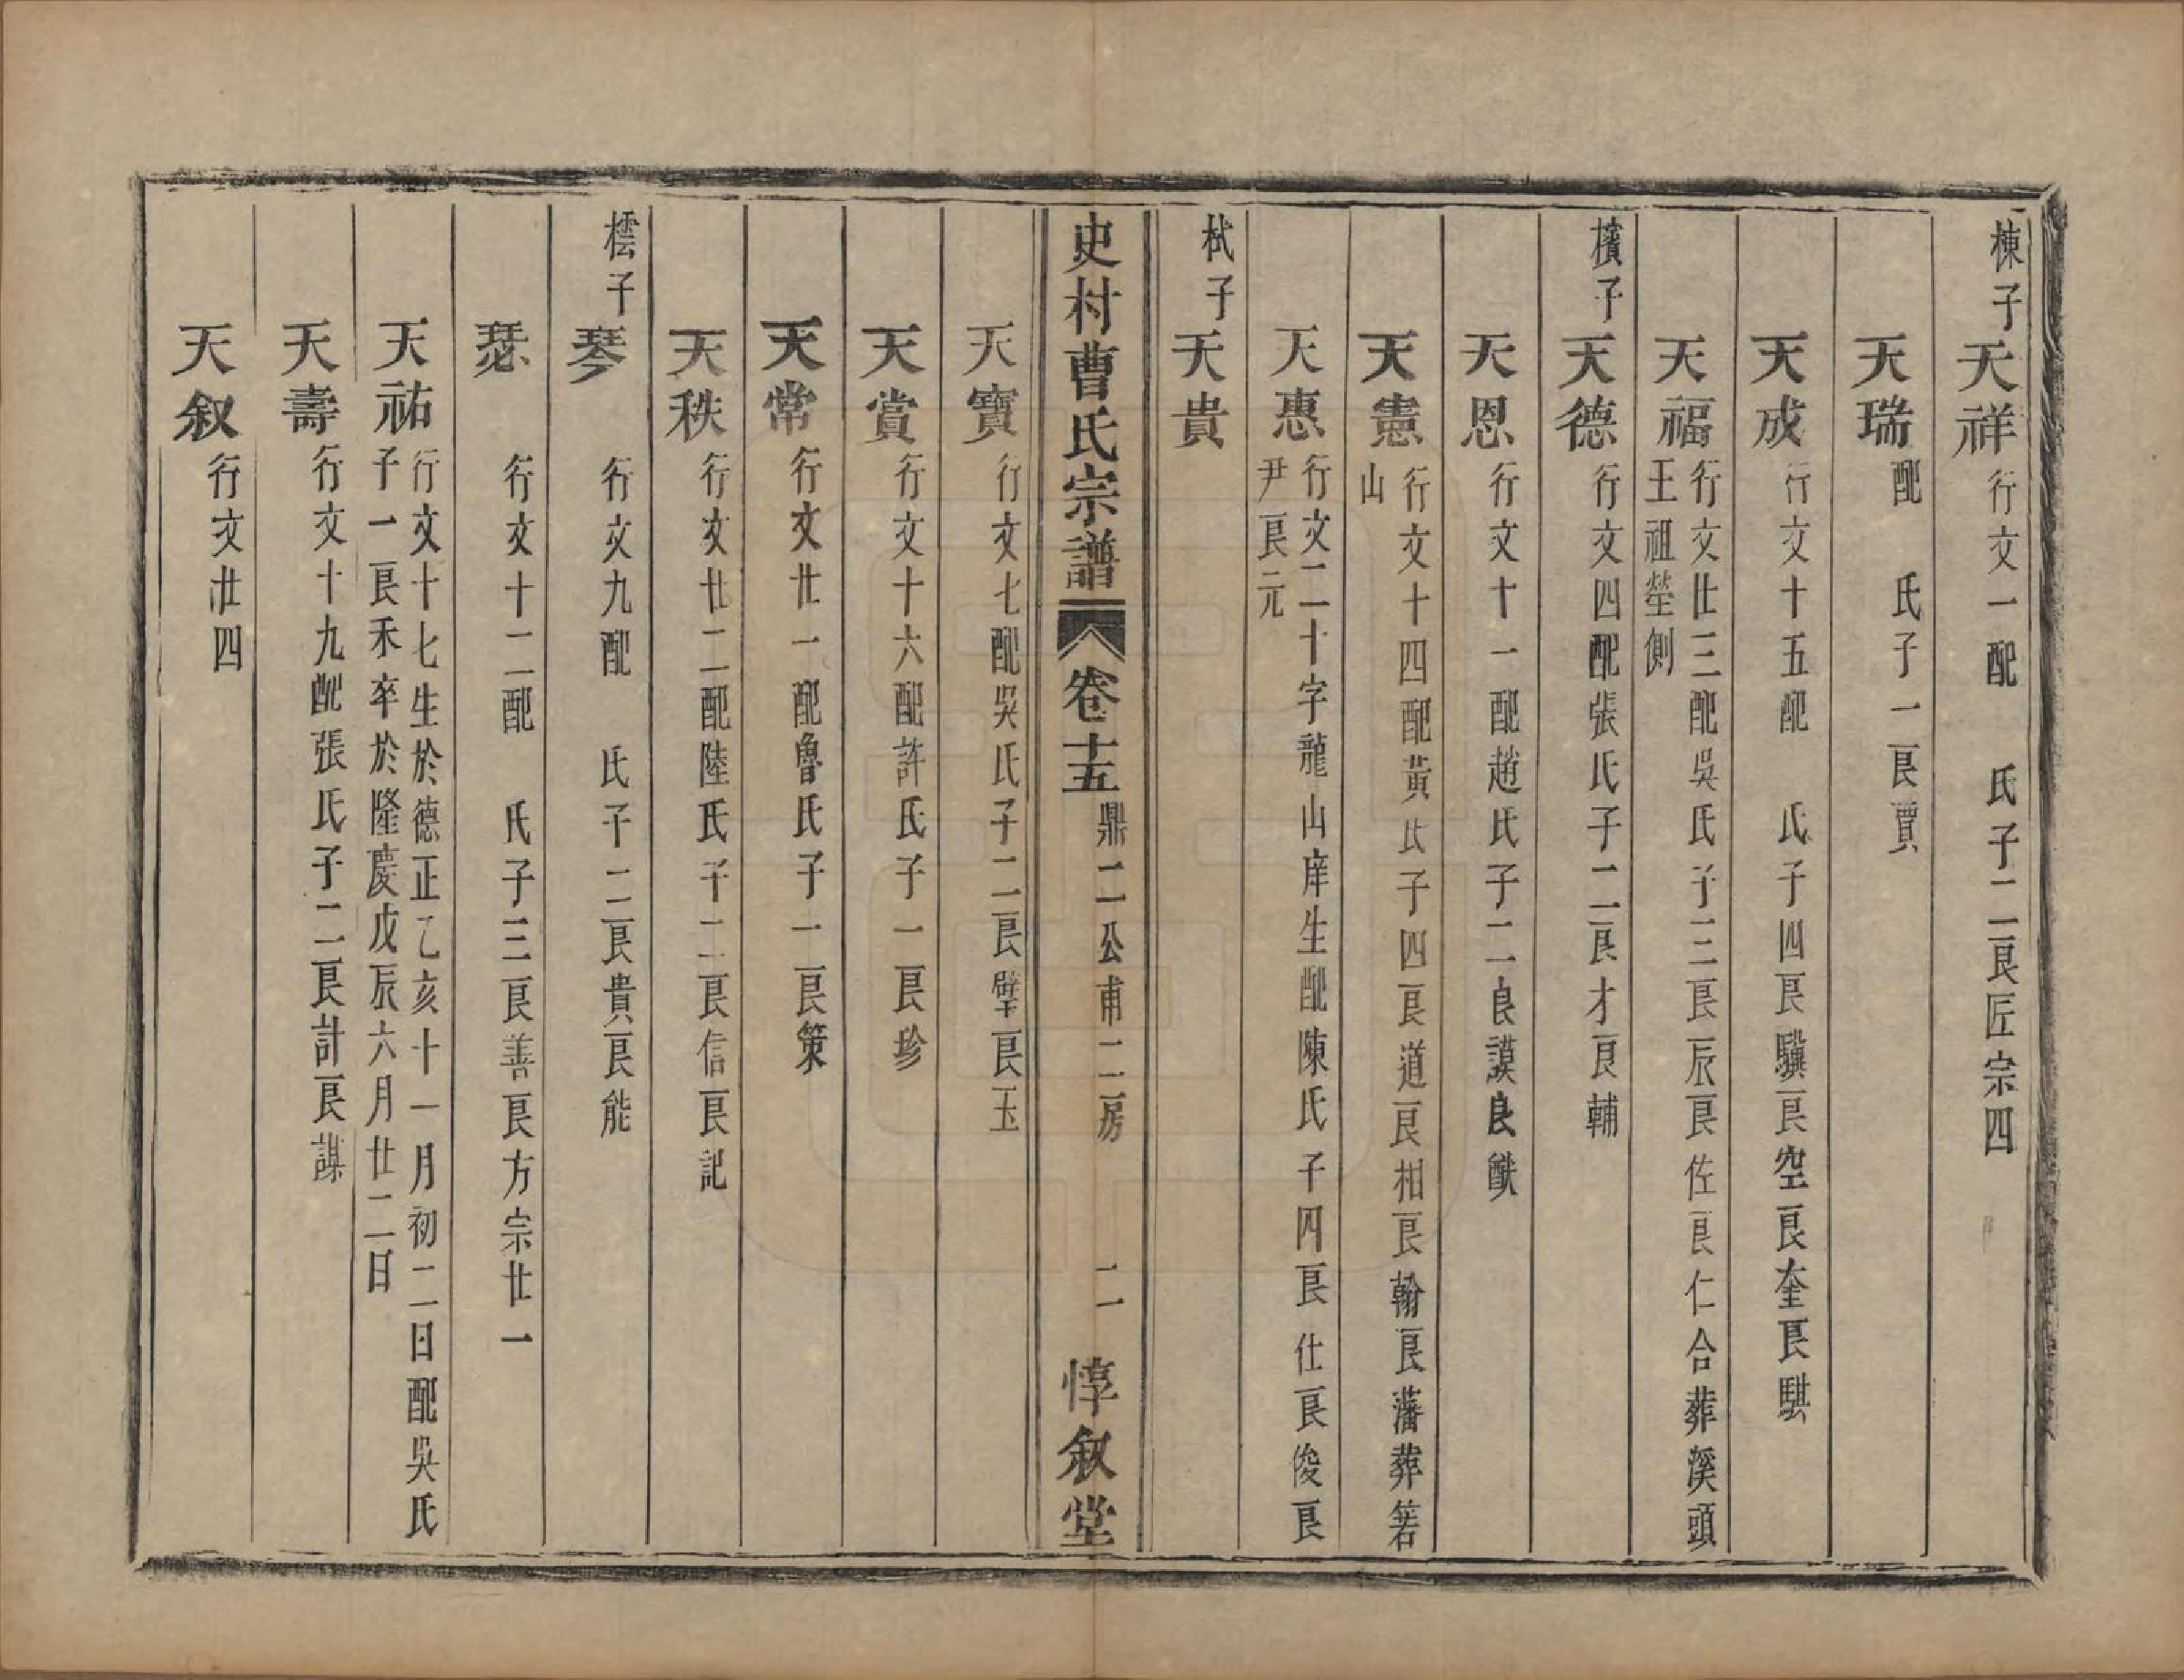 棟子
天祥 行文一配 氏子二良匠宗四
天瑞 配 氏子一良賈
天成 行文十五配 氏子四良驥良空良奎良騏
天福 行文廿三配吳氏子三良辰良佐良仁合葬溪頭
王祖塋側
檳子
天德 行文四配張氏子二良才良輔
天恩 行文十一配趙氏子二良謨良猷
天憲 行文十四配黃氏子四良道良相良翰良藩葬箬
山
天惠 行文二十字龍山庠生配陳氏子四良仕良俊良
尹良元
栻子
天貴
史村曹氏宗譜 卷十五 鼎二公甫二房 二 惇叙堂
天寶 行文七配吳氏子二良璧良玉
天賞 行文十六配許氏子一良珍
天常 行文廿一配魯氏子一良策
天秩 行文廿二配陸氏子二良信良記
橒子
琴 行文九配 氏子二良貴良能
瑟 行文十二配 氏子三良善良方宗廿一
天祐 行文十七生於德正乙亥十一月初二日配吳氏
子一良禾卒於隆慶戊辰六月廿二日
天壽 行文十九配張氏子二良計良謀
天叙 行文廿四